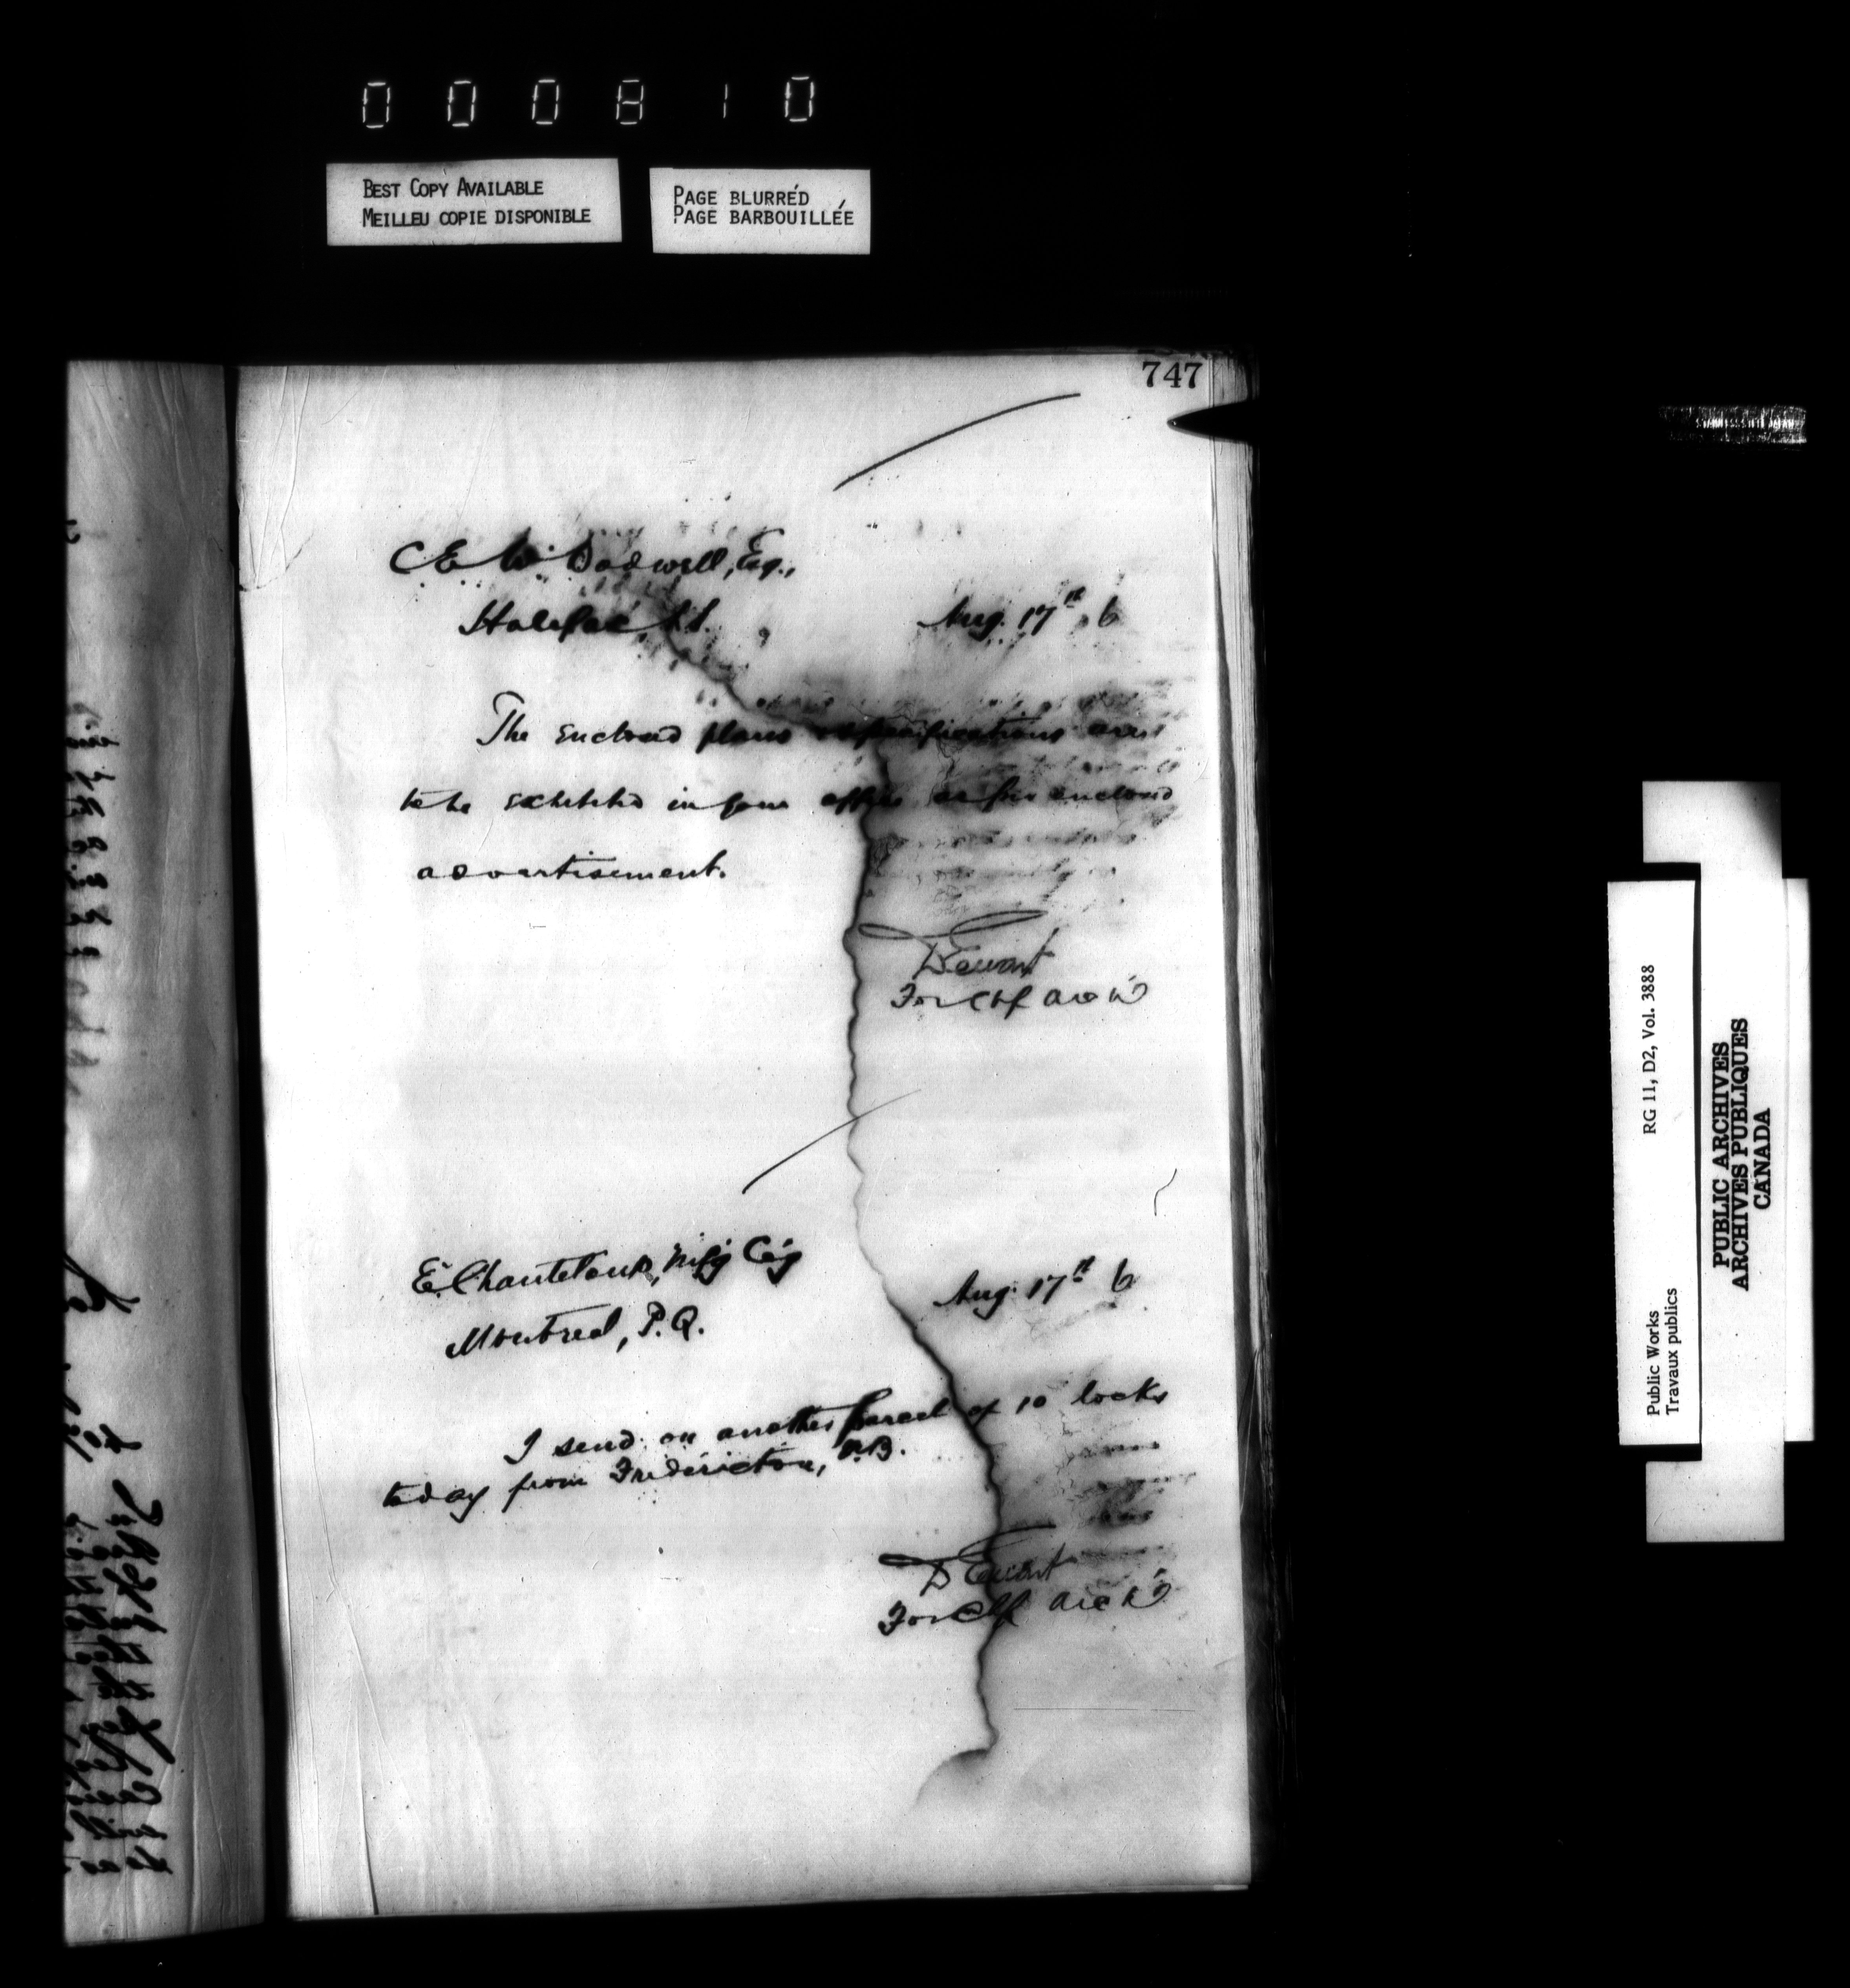 000810
BEST COPY AVAILABLE
MEILLEU COPIE DISPONIBLE
PAGE BLURRÉD
PAGE BARBOUILLÉE
747
C E W Dodwell, Esq.,
Halifax, N.S.
Aug. 17th, 6
The enclosed plans & specifications are
to be exhibited in your office as per enclosed
advertisement.
D Ewart
For Chf Arch't
E. Chanteloup, Mfg Co'y
Montreal, P.Q.
Aug. 17th 6
I send on another parcel of 10 locks
today from Fredericton, N.B.
D Ewart
For Chf Arch't
Public Works
Travaux publics
RG 11, D2, Vol. 3888
PUBLIC ARCHIVES
ARCHIVES PUBLIQUES
CANADA